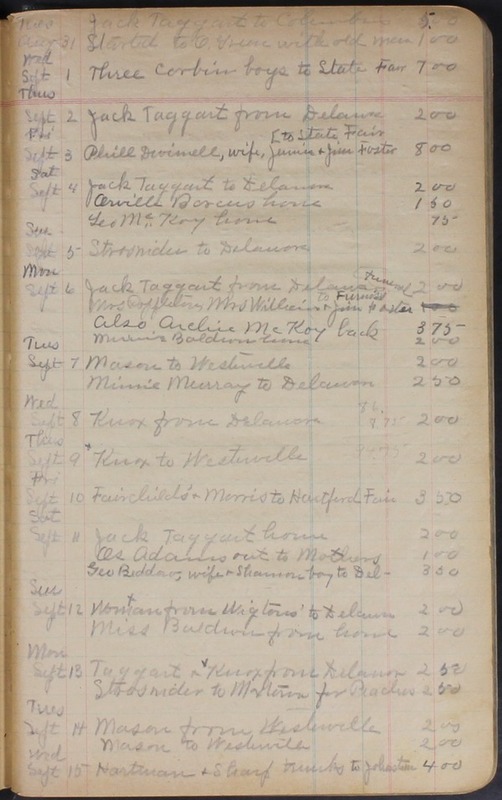 Tues Jack Taggart to Columbus 5.00
Aug 31 Started to with old men 1 00
Wed
Sept 1 Three Corbin boys to State Fair 7 00
Thurs
Sept 2 Jack Taggart from Delawa 2 00
Fri [to State Fair
Sept 3 Phill Dwinell, wife, Jamie & Jim Foster 8 00
Sat
Sept 4 Jack Taggart to Delawon 2 00
Orville Borcus home 1 50
Geo Mc Koy home 75
Sun
Sept 5 Strosnider to Delawon 2 00
Mon
Sept 6 Jack Taggart from Delawa 2 00
Mrs Mrs William & Jim Foster to Funeral 1 00
Also Archie McKoy back 3 75
Minnie Baldwin home 2 00
Tues
Sept 7 Mason to Westerville 2 00
Minnie Murray to Delawon 2 50
Wed
Sept 8 Knox from Delawon 2 00
Thurs
Sept 9 Knox to Westerville 2 00
Fri
Sept 10 Fairchilds & Morris to Hartford Fair 3 50
Sat
Sept 11 Jack Taggart home 2 00
Os Adams out to Mothers 1 00
Geo wife & Shannon boy to Del- 3 00
Sun
Sept 12 from Wigtons' to Delawn 2 00
Miss Baldwin from home 2 00
Mon
Sept 13 Taggart & Knox from Delawon 2 50
Strosnider to for Peaches 2 50
Tues
Sept 14 Mason from Westerville 2 00
Mason to Westerville 2 00
Wed
Sept 15 Hartman & Sharf trunks to Johnston 4 00